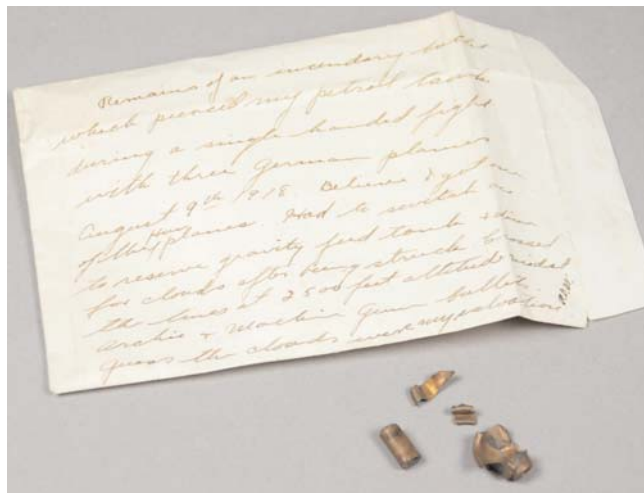 Remains of an incendiary
which pierced my petrol tank
during a single handed fight
with three German planes
August 9th 1918. Believe I got one
of Hun planes. Had to switch on
to reserve gravity feed tank + dive
for clouds after being struck. Crossed
the lines at 2500 feet altitude midst
archie + machine gun bullets
guess the clouds were my salvation